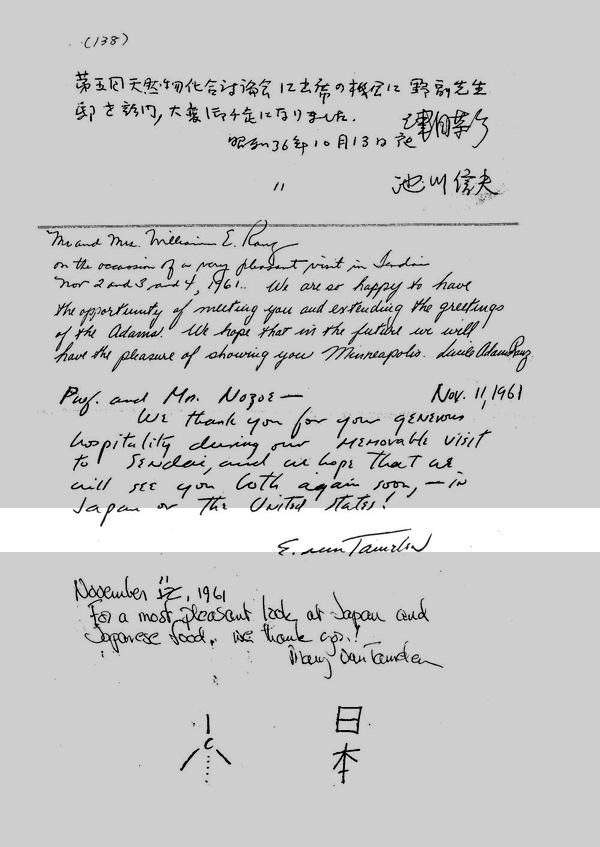 (138)
第五回天然物化合討論会に出席の機会に 野副先生
邸を訪問, 大変御馳走になりました.
昭和36年10月13日夜
〃 池川信夫
Mr and Mrs. William E. Ranz
on the occasion of a very pleasant visit in Sendai
Nov 2 and 3 and 4, 1961.. We are so happy to have
the opportunity of meeting you and extending the greetings
of the Adams. We hope that in the future we will
have the pleasure of showing you Minneapolis. Lucile Adams Ranz
Prof. and Mrs. Nozoe — Nov. 11, 1961
We thank you for your generous
hospitality during our memorable visit
to Sendai, and we hope that we
will see you both again soon, — in
Japan or the United States!
E. van Tamelen
November 12, 1961
For a most pleasant look at Japan and
Japanese food, we thank you!
Mary Van Tamelen
C
日
本